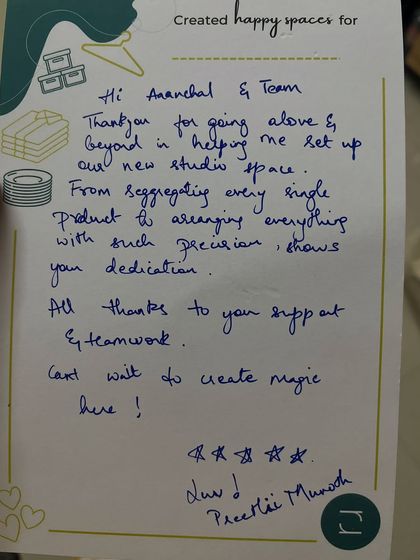 Created happy spaces for
Hi Aaanchal & Team
Thankyou for going above &
beyond in helping me set up
our new studio space.
From seggregating every single
product to arranging everything
with such precision, shows
your dedication.
All thanks to your support
& teamwork.
Cant wait to create magic
here !
Luv !
Preethi Munoth